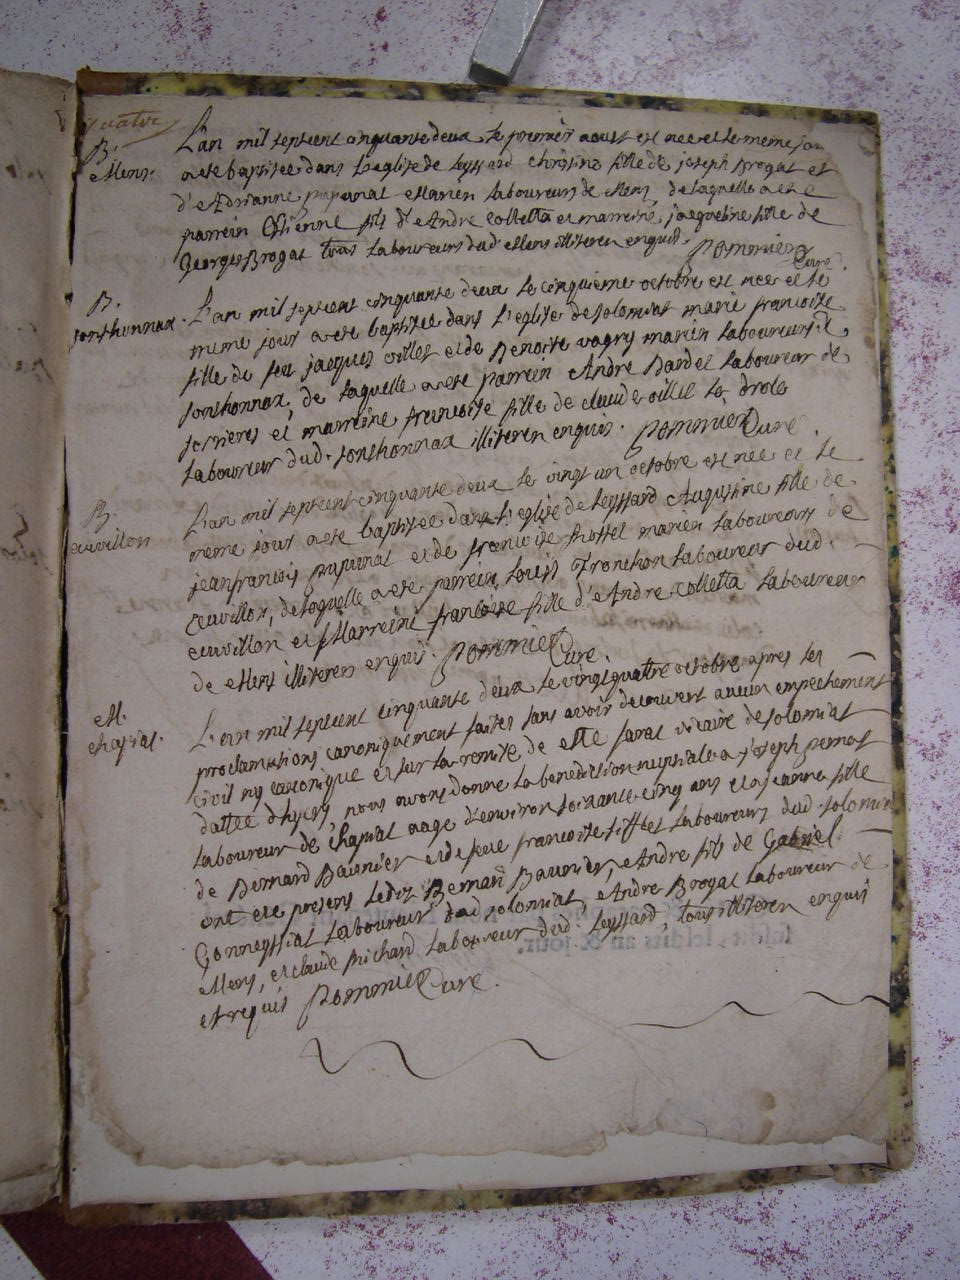 quatre
B.
Mens.
L'an mil septcent cinquante deux le premier aoust est nee et le meme jou
a ete baptisee dans l'eglise de leyssard christine fille de joseph Brogat et
d'Adrianne pupunat Mariers laboureurs de Mens de laquelle a ete
parrein Estienne fils d'Andre Colletta et marreine jacqueline fille de
George Brogat tous laboureurs dud. Mens illiteres enquis. pommier
Cure.
B.
sonthonnax.
L'an mil septcent cinquante deux le cinquieme octobre est nee et le
meme jour a ete baptisee dans l'eglise de solomiat marie francoise
fille de feu jacques oillet et de Benoite vagry mariers laboureurs
sonthonnax, de laquelle a ete parrein Andre Bardet laboureur de
serrieres et marreine francoise fille de claude oillet le drole
laboureur dud. sonthonnax illiteres enquis. pommier Cure.
B.
cuvillon
L'an mil septcent cinquante deux le vingt un octobre est nee et le
meme jour a ete baptisee dans l'eglise de leyssard Augustine fille de
jeanfrancois pupunat et de francoise mariers laboureurs de
cuvillon, de laquelle a ete parrein louis Tronchon laboureur dud.
cuvillon et Marreine francoise fille d'Andre Colletta laboureur
de Mens illiteres enquis. pommier Cure.
M.
chapiat.
L'an mil septcent cinquante deux le vingtquatre octobre apres les
proclamations canoniquement faites sans avoir decouvert aucun empechement
civil ny canonique et sur la remise de Mre vicaire de solomiat
dattee d'hyer, nous avons donne la benediction nuptiale a joseph pernat
laboureur de chapiat aage d'environ soixante cinq ans et a jeanne fille
de Bernard Baunier et de feue francoise laboureurs dud. solomia
ont ete presens ledit Bernard Baunier, Andre fils de Gabriel
Gonnessiat laboureur dud. solomiat, Andre Brogat laboureur de
Mens, et claude Michard laboureur dud. leyssard, tous illiteres enquis
et requis pommier Cure.